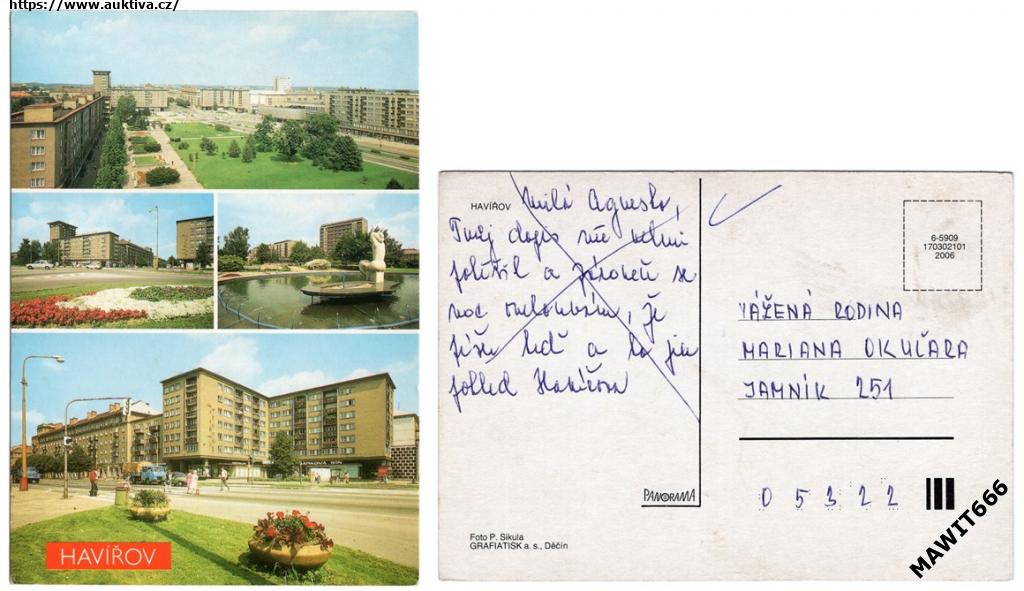 https://www.auktiva.cz/
HAVÍŘOV
HAVÍŘOV
Milá
Tvůj dopis mě velmi
potěšil a zároveň se
moc omlouvám, že
píšu teď a to jen
pohled Havířova
6-5909
170302101
2006
VÁŽENÁ RODINA
MARIANA OKUČÁRA
JAMNÍK 251
PANORAMA
0 5 3 2 2
Foto P. Sikula
GRAFIATISK a. s., Děčín
MAWIT666